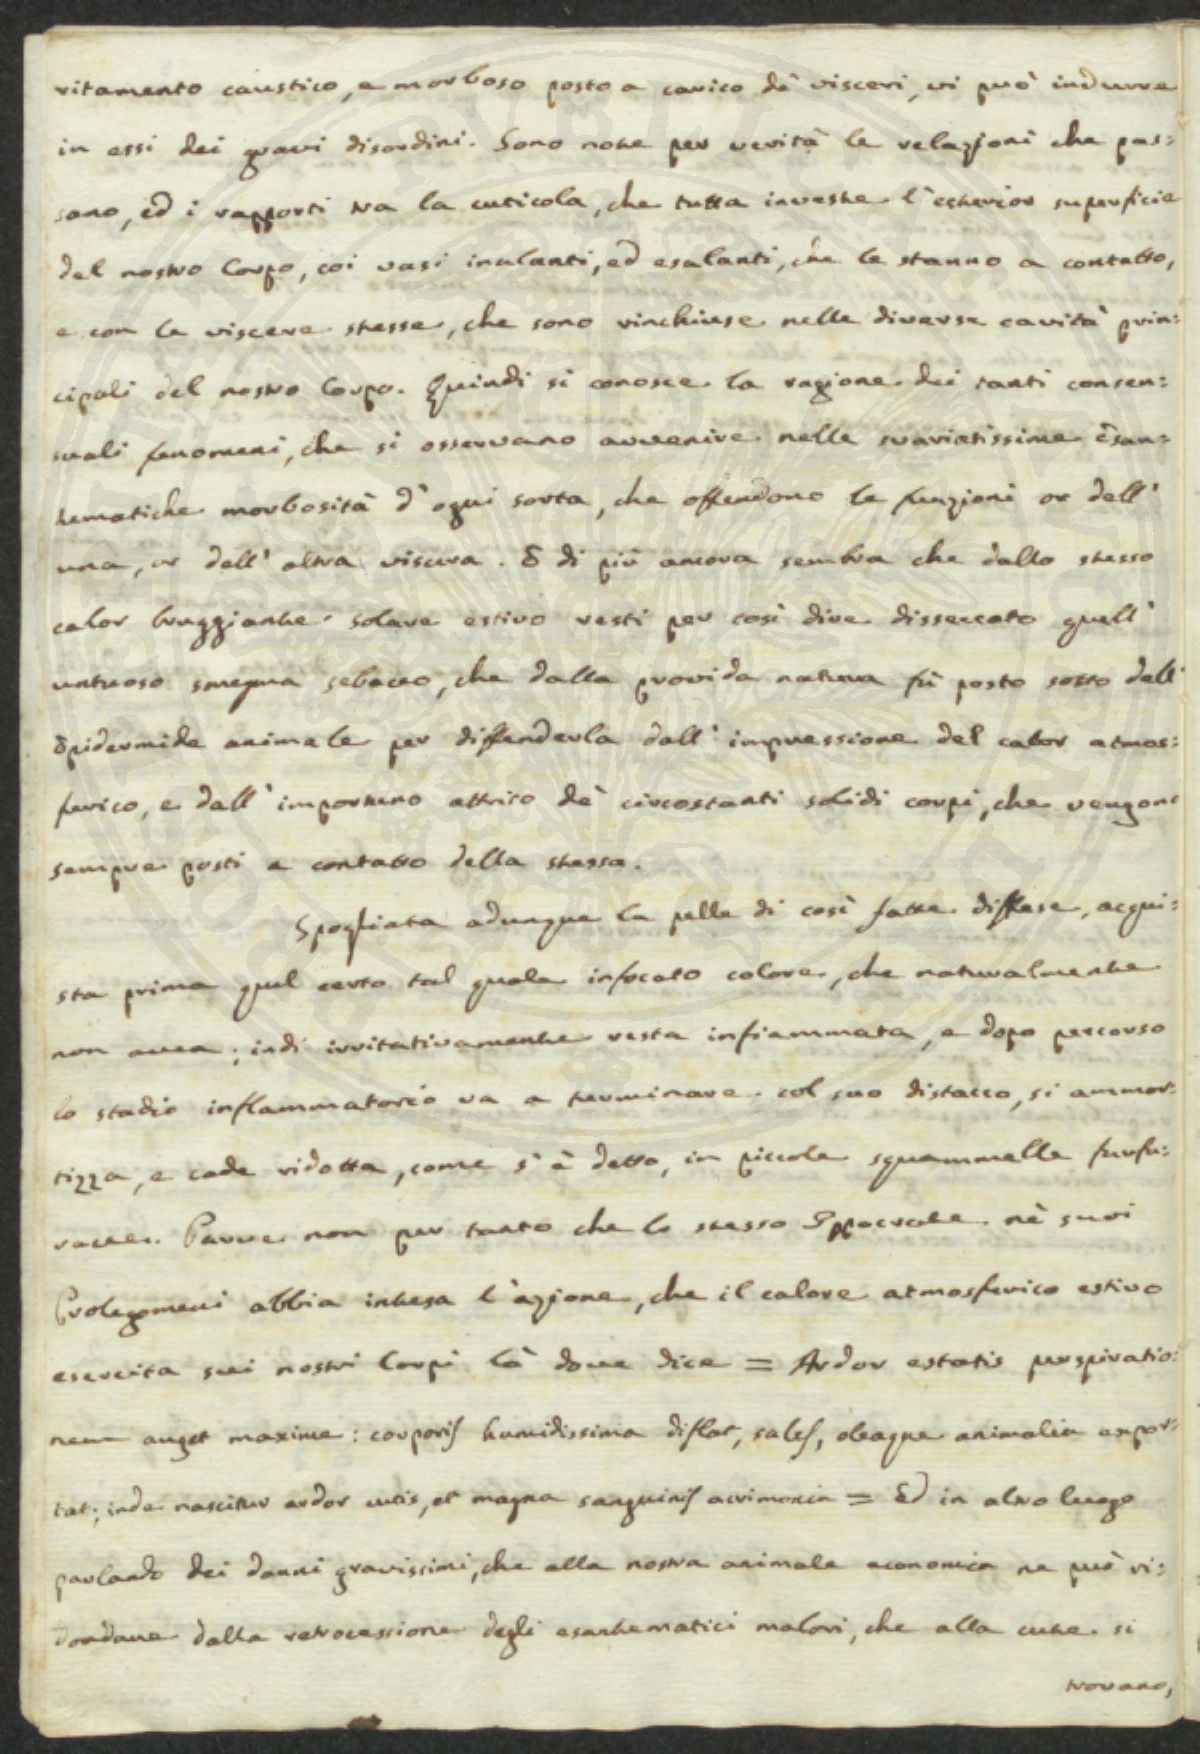 ritamento caustico, e morboso posto a carico de' visceri, vi può indurre
in essi dei gravi disordini. Sono note per verità le relazioni che pas=
sano, ed i rapporti tra la cuticola, che tutta investe l'esterior superficie
del nostro Corpo, coi vasi inalanti, ed esalanti, che le stanno a contatto,
e con le viscere stesse, che sono rinchiuse nelle diverse cavità prin=
cipali del nostro Corpo. Quindi si conosce la ragione dei tanti consen=
suali fenomeni, che si osservano avvenire nelle svariatissime Esan=
tematiche morbosità d'ogni sorta, che offendono le funzioni or dell'
una, or dell'altra viscera. E di più ancora sembra che dallo stesso
calor bruggiante solare estivo resti per così dire disseccato quell'
untuoso smegma sebaceo, che dalla provida natura fù posto sotto dell'
Epidermide animale per diffenderla dall'impressione del calor atmos=
ferico, e dall'importuno attrito de' circostanti solidi corpi, che vengono
sempre posti a contatto della stessa.
Spogliata adunque la pelle di così fatte diffese, acqui=
sta prima quel certo tal quale infocato colore, che naturalmente
non avea; indi irritativamente resta infiammata, e dopo percorso
lo stadio inflammatorio va a terminare col suo distacco, si ammor=
tizza, e cade ridotta, come s'è detto, in piccole squammelle furfu=
racee. Parve non per tanto che lo stesso Ippocrate nè suoi
Prolegomeni abbia intesa l'azione, che il calore atmosferico estivo
esercita sui nostri Corpi là dove dice = Ardor estatis perspiratio=
nem auget maxime: corporis humidissima diflat, sales, oleaque animalia expor=
tat; inde nascitur ardor cutis, et magna sanguinis acrimonia = Ed in altro luogo
parlando dei danni gravissimi, che alla nostra animale economica ne può ri=
dondare dalla retrocessione degli esantematici malori, che alla cute si
trovano,